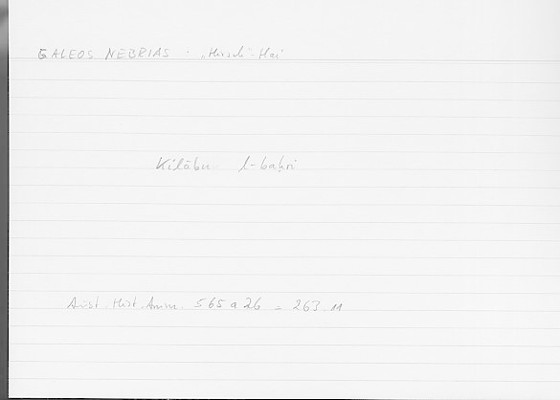 GALEOS NEBRIAS · „Hirsch-Hai"
Kilābu l-baḥri
Arist. Hist. Anim 565 a 26 = 263.11